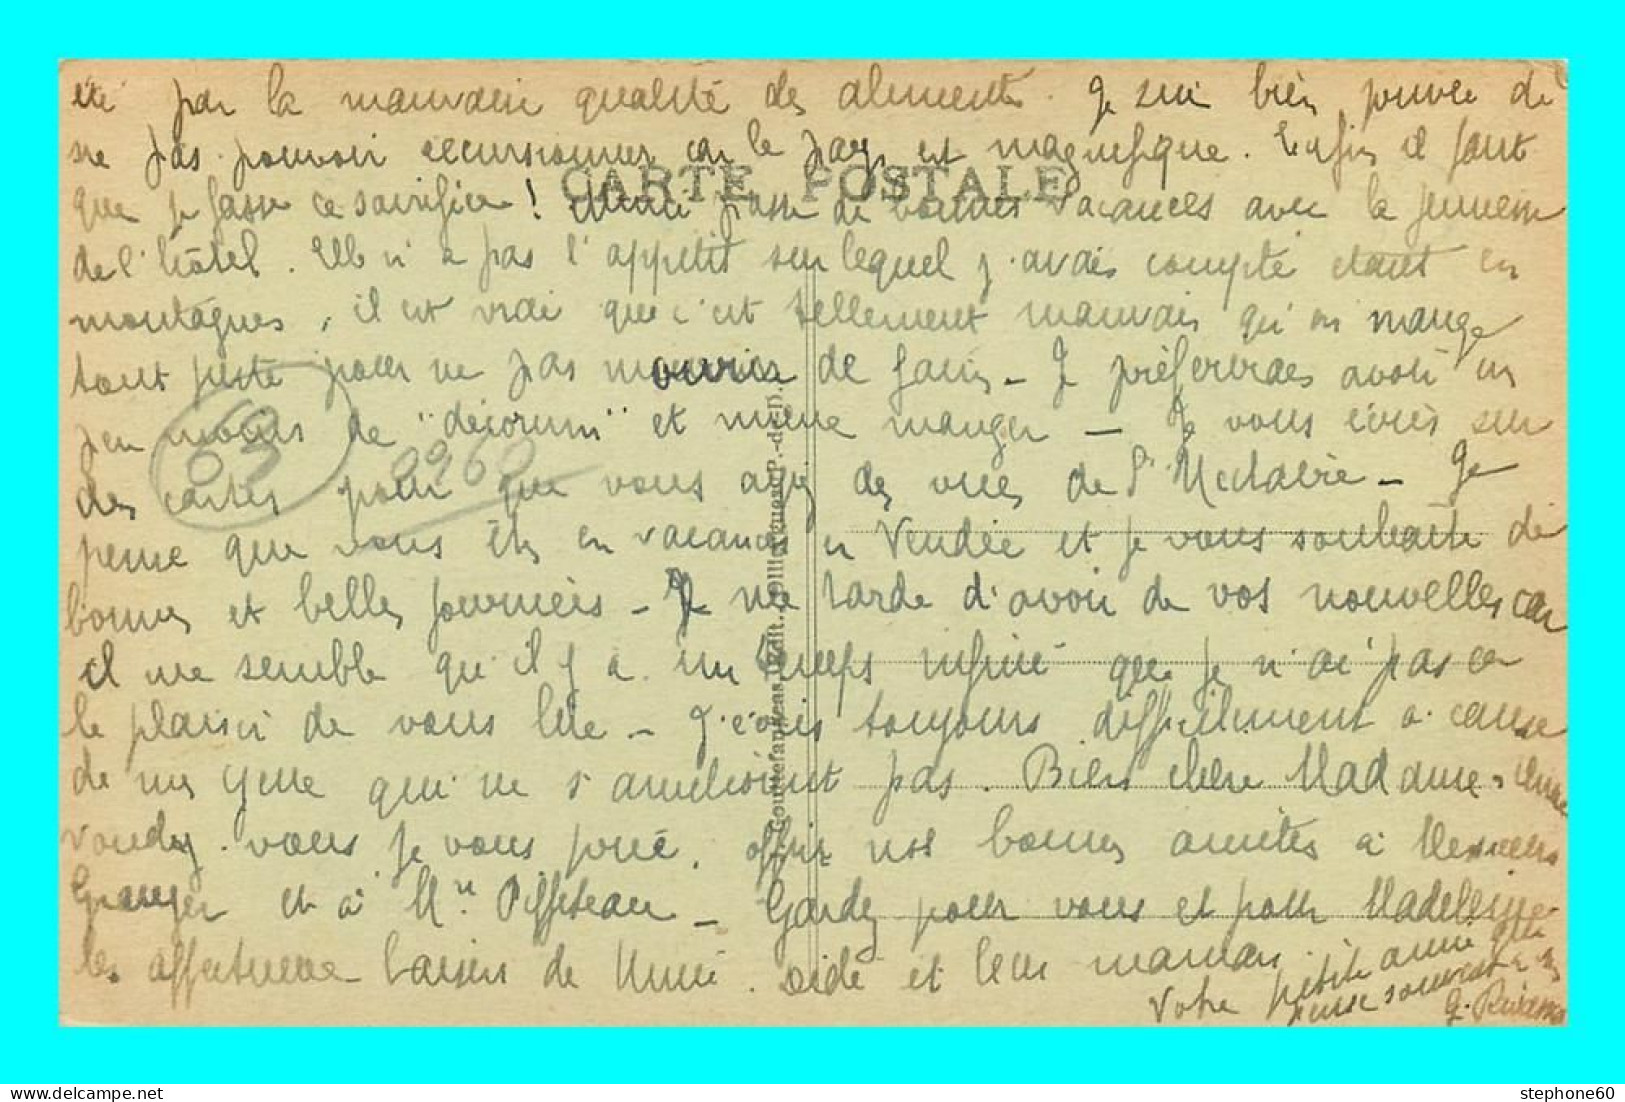 été par la mauvaise qualité des aliments. Je suis bien privée de
ne pas pouvoir excursionner car le pays est magnifique. Enfin il faut
CARTE POSTALE
que je fasse ce sacrifice ! Mimi passe de bonnes vacances avec la jeunesse
de l'hôtel. Elle n'a pas l'appétit sur lequel j'avais compté étant en
montagnes, il est vrai que c'est tellement mauvais qu'on mange
tout juste pour ne pas mourir de faim - Je préférerais avoir un
peu moins de "décorum" et mieux manger - Je vous écris sur
63
0960
des cartes pour que vous ayez des vues de St Nectaire - Je
pense que vous êtes en vacances en Vendée et je vous souhaite de
bonnes et belles journées - Il me tarde d'avoir de vos nouvelles car
il me semble qu'il y a un temps infini que je n'ai pas eu
le plaisir de vous lire - J'écris toujours difficilement à cause
de mes yeux qui ne s'améliorent pas. Bien chère Madame,
voudrez-vous je vous prie, offrir nos bonnes amitiés à Messieurs
Granger et à Mr Piffeteau - Gardez pour vous et pour Madeleine
les affectueux baisers de Mimi, Dédé et leur maman.
Votre petite amie qui
pense souvent à vous
G.
Gouttefangeas, Édit.